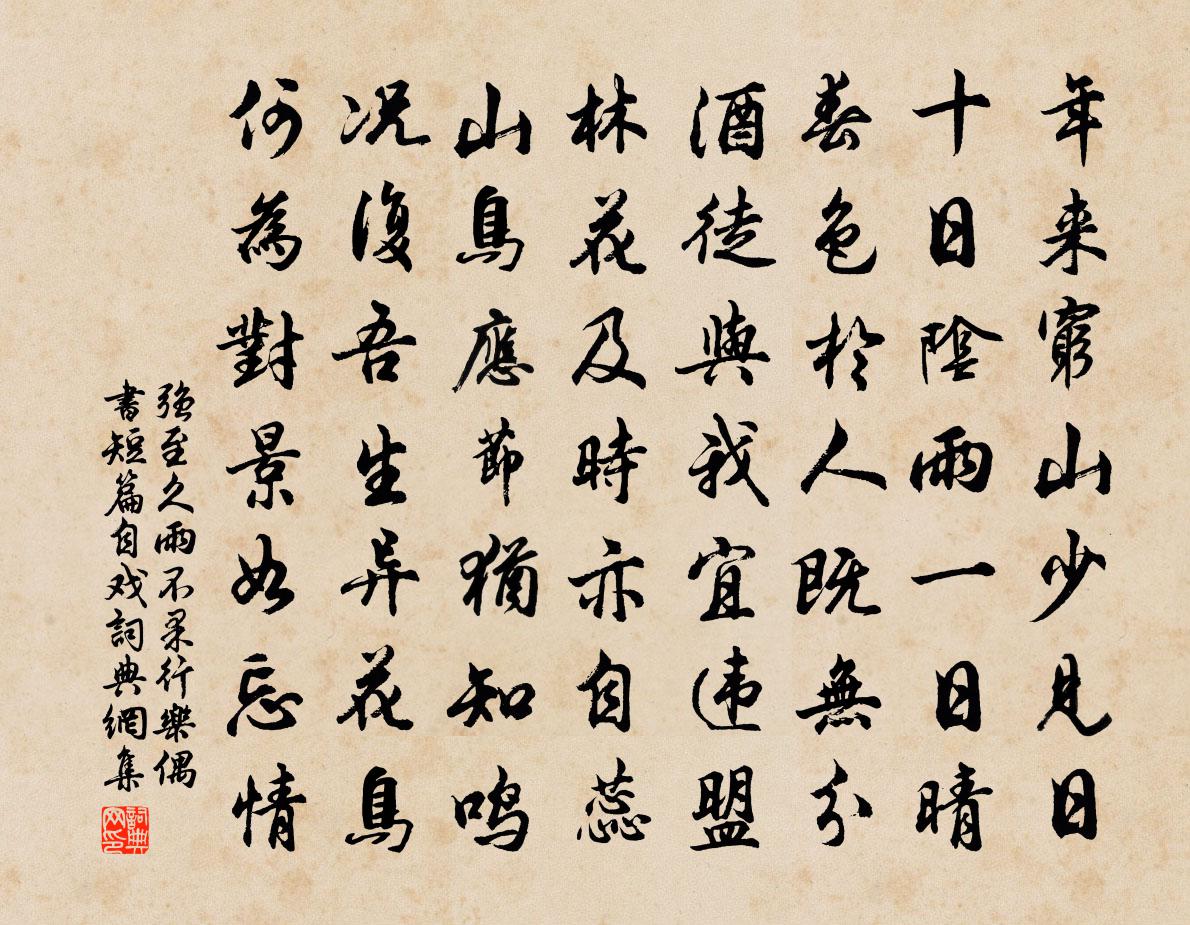 年来窮山少見日
十日陰雨一日晴
春色於人既無分
酒徒與我宜违盟
林花及時亦自蕊
山鳥應節猶知鳴
况復吾生异花鳥
何為對景如忘情
强至久雨不果行樂偶
書短篇自戏詞典網集
詞典
网印